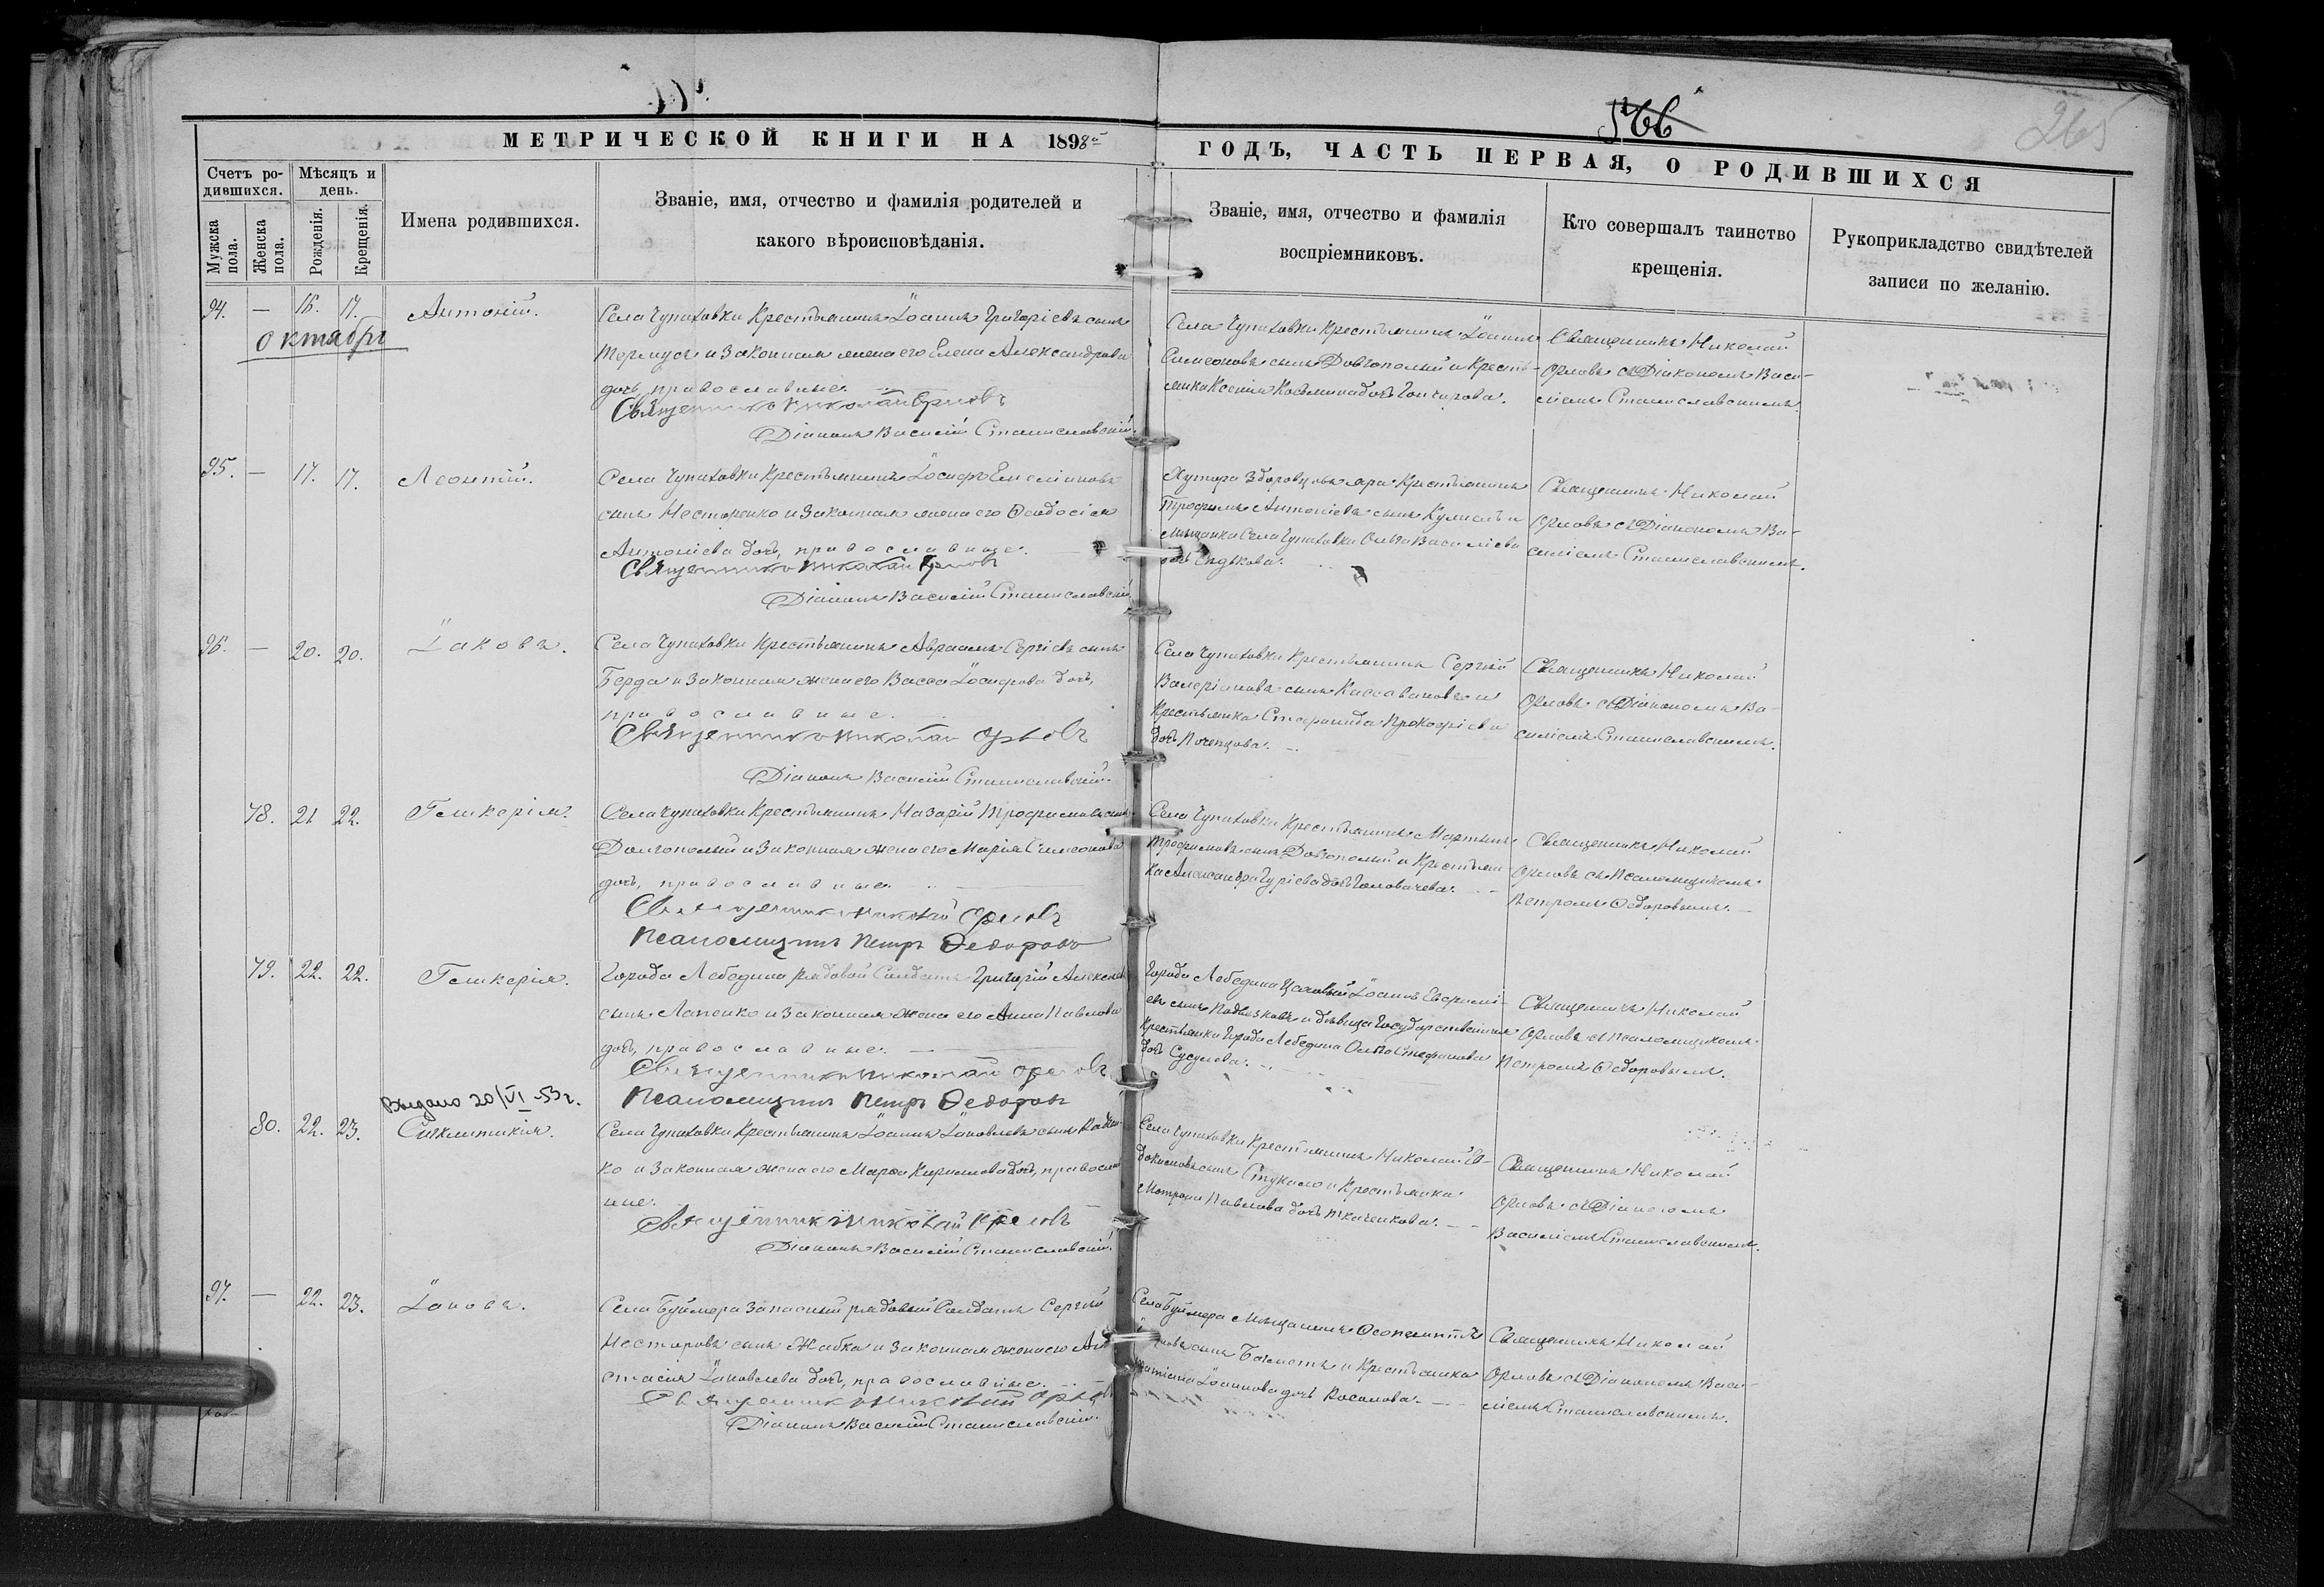 566
265
МЕТРИЧЕСКОЙ КНИГИ НА 1898й
ГОДЪ, ЧАСТЬ ПЕРВАЯ, О РОДИВШИХСЯ
Счетъ ро-
дившихся.
Мужска
пола.
Женска
пола.
Мѣсяцъ и
день.
Рожденія.
Крещенія.
Имена родившихся.
Званіе, имя, отчество и фамилія родителей и
какого вѣроисповѣданія.
Званіе, имя, отчество и фамилія
воспріемниковъ.
Кто совершалъ таинство
крещенія.
Рукоприкладство свидѣтелей
записи по желанію.
94. — 16. 17. Антоній.
Октября
Села Чупаховки Крестьянинъ Іоаннъ Григоріевъ сынъ
и законная жена его Елена Александрова
дочь, православные.
Священникъ Николай Орловъ
Діаконъ Василій Станиславскій.
Села Чупаховки Крестьянинъ Іоаннъ
Симеоновъ сынъ Довгополый и Кресть-
янка Ксенія Косьмина дочь Гончарова.
Священникъ Николай
Орловъ съ Діакономъ Васи-
ліемъ Станиславскимъ.
95. — 17. 17. Леонтій.
Села Чупаховки Крестьянинъ Іосифъ Емеліановъ
сынъ Нестеренко и законная жена его Ѳеодосія
Антоніева дочь, православные.
Священникъ Николай Орловъ
Діаконъ Василій Станиславскій
Хутора Здоровцова яра Крестьянинъ
Трофимъ Антоніевъ сынъ и
мѣщанка Села Чупаховки Ольга Василіева
дочь
Священникъ Николай
Орловъ съ Діакономъ Ва-
силіемъ Станиславскимъ.
96. — 20. 20. Іаковъ.
Села Чупаховки Крестьянинъ Авраамъ Сергіевъ сынъ
Берда и законная жена его Васса Іосифова дочь,
православные.
Священникъ Николай Орловъ
Діаконъ Василій Станиславскій.
Села Чупаховки Крестьянинъ Сергій
Валеріановъ сынъ и
Крестьянка Стефанида Прокофіева
дочь Поченцова.
Священникъ Николай
Орловъ съ Діакономъ Ва-
силіемъ Станиславскимъ.
78. 21 22. Гликерія.
Села Чупаховки Крестьянинъ Назарій Трофимовъ сынъ
Долгополый и законная жена его Марія Симеонова
дочь, православные.
Священникъ Николай Орловъ
Псаломщикъ Петръ Ѳедоровъ
Села Чупаховки Крестьянинъ Мартинъ
Трофимовъ сынъ Довгополый и Крестьян
ка Александра Гуріева дочь Головачева.
Священникъ Николай
Орловъ съ Псаломщикомъ
Петромъ Ѳедоровымъ.
79. 22. 22. Гликерія.
Города Лебедина рядовой Солдатъ Григорій Алексѣевъ
сынъ Лапенко и законная жена его Анна Павлова
дочь, православные.
Священникъ Николай Орловъ
Псаломщикъ Петръ Ѳедоровъ
Города Лебедина Іоаннъ Евфимі-
евъ сынъ и дѣвица Государственная
Крестьянка Города Лебедина Ольга Стефанова
дочь Сусулева.
Священникъ Николай
Орловъ съ псаломщикомъ
Петромъ Ѳедоровымъ.
Выдано 20/VI-53г.
80. 22. 23. Сигклитикія.
Села Чупаховки Крестьянинъ Іоаннъ Іаковлевъ сынъ
ко и законная жена его Марфа Кириллова дочь, православ
ные.
Священникъ Николай Орловъ
Діаконъ Василій Станиславскій.
Села Чупаховки Крестьянинъ Николай Ев-
докимовъ сынъ Стукало и Крестьянка
Матрона Павлова дочь Ткаченкова.
Священникъ Николай
Орловъ съ Діакономъ
Василіемъ Станиславскимъ.
97. — 22. 23. Іаковъ.
Села Буймера Запасный рядовый Солдатъ Сергій
Несторовъ сынъ Жабка и законная жена его Ана
стасія Іаковлева дочь, православные.
Священникъ Николай Орловъ
Діаконъ Василій Станиславскій.
Села Буймера Мѣщанинъ Ѳеопемптъ
сынъ и Крестьянка
Татіана Іоаннова дочь Косолова.
Священникъ Николай
Орловъ съ Діакономъ Васи-
ліемъ Станиславскимъ.